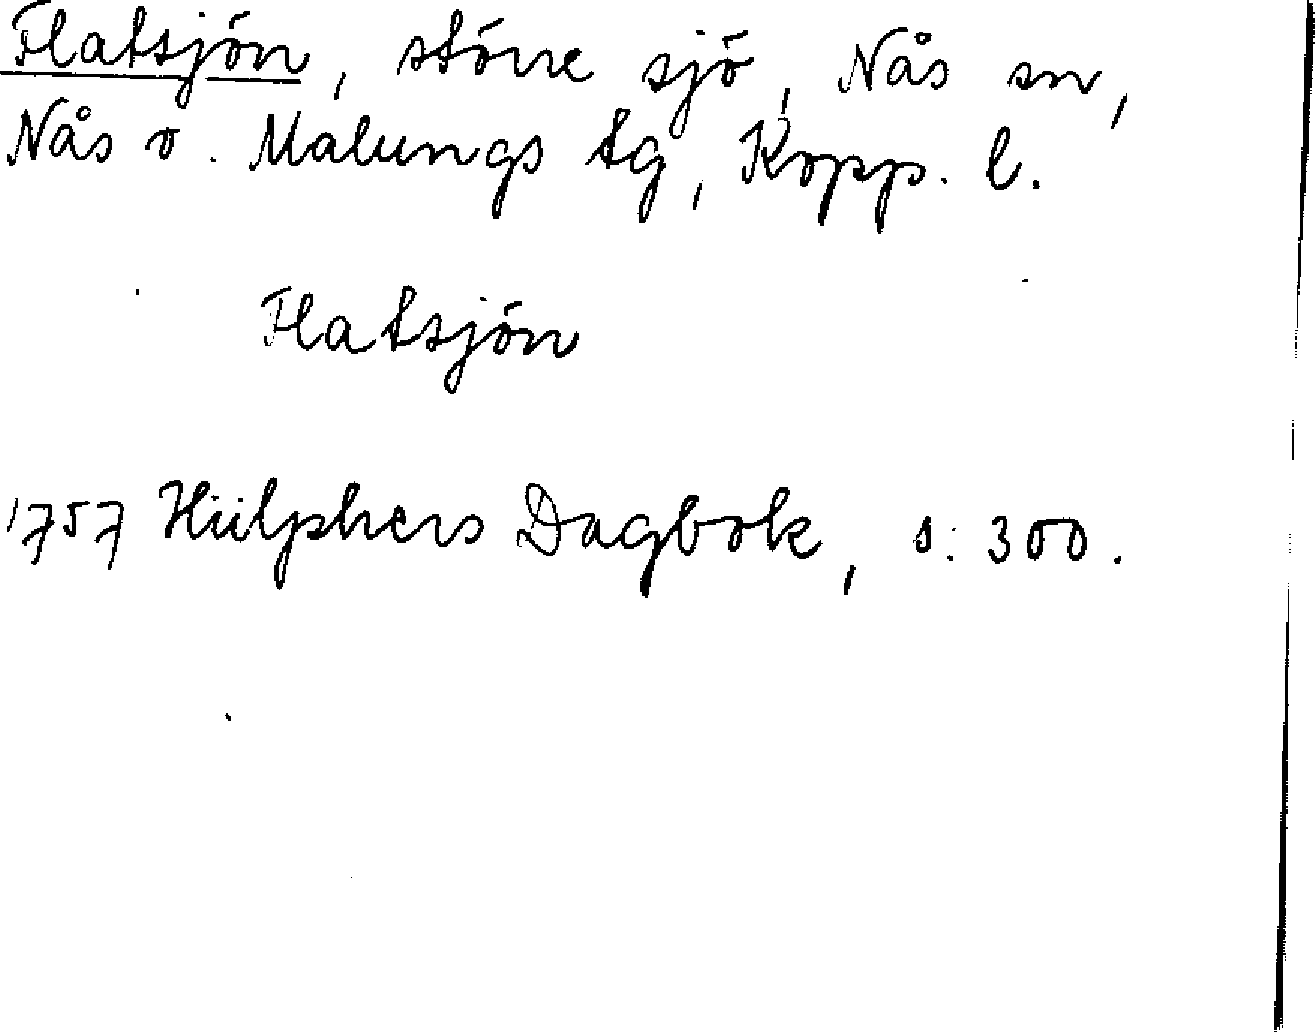 Flatsjön, större sjö, Nås sn,
Nås o. Malungs tg, Kopp. l.
Flatsjön
1757 Hülphers Dagbok, s. 300.